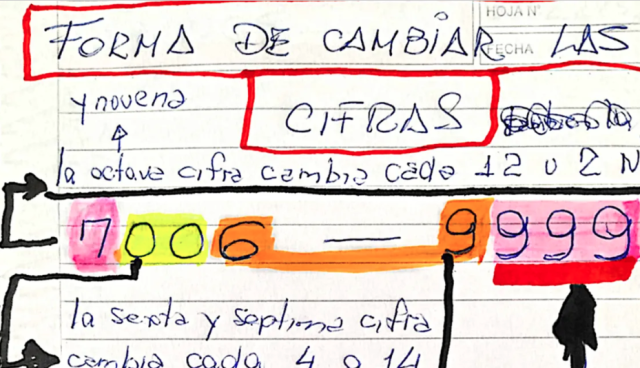 HOJA Nº
FORMA DE CAMBIAR LAS
FECHA
y novena
CIFRAS
la octava cifra cambia cada 12 o 2 N
7006 — 9999
la sexta y septima cifra
cambia cada 4 o 14